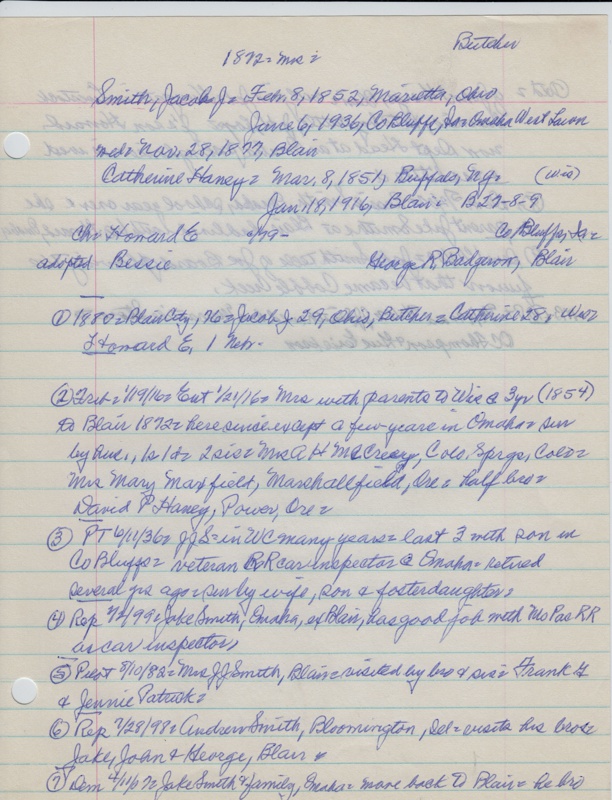 Butcher
1872 = Mrs =
Smith, Jacob J = Feb. 8, 1852, Marietta, Ohio
June 6, 1936, Co Bluffs, Ia = Omaha West Lawn
md = Nov. 28, 1877, Blair
Catherine Haney = Mar. 8, 1851, Buffalo, Ny = (Wis)
Jan. 18, 1916, Blair = B 27-8-9
Ch = Howard E 9/79 - Co Bluffs, Ia =
adopted Bessie George R Badgerow, Blair
① 1880 = Blair City, Ne = Jacob J 29, Ohio, Butcher = Catherine 28,
Howard E, 1 Nebr.
② Trib = 1/19/16 = Ent 1/21/16 = Mrs with parents to Wis @ 3yr (1854)
to Blair 1872 = here since except a few years in Omaha = sur
by hus., 1s 1d = 2 sis = Mrs A H McCreery, Colo. Sprgs, Colo =
Mrs Mary Maxfield, Marshallfield, Ore = half bro =
David P Haney, Power, Ore =
③ PT 6/11/36 = JJS = in WC many years = last 3 with son in
Co Bluffs = veteran RR car inspector @ Omaha = retired
several yrs ago = sur by wife, son & foster daughter =
④ Rep 7/2/99 = Jake Smith, Omaha, of Blair, has good job with Mo Pac RR
as car inspector,
⑤ 8/10/82 = Mrs JJ Smith, Blair = visited by bro & sis = Frank G
& Jennie Patrick =
⑥ Rep = Andrew Smith, Bloomington, = visits his bros =
Jake, John & George, Blair =
⑦ Dem = Jake Smith & family, Omaha = move back to Blair = he bro